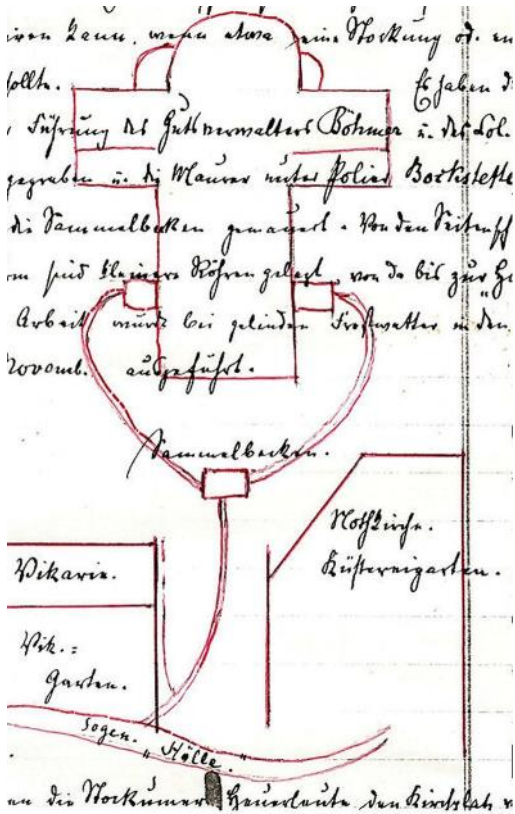 iren kann, wenn etwa eine Stockung od. en
sollte. Es haben d
Führung des Gutsverwalters Böhmer u. des Col.
gegraben u. die Maurer unter Polier Bockstette
die Sammelbecken gemauert. Von den Seitensch
en sind kleinere Röhren gelegt von da bis zur „H
Arbeit wurde bei gelinden Frostwetter in den
Novemb. ausgeführt.
Sammelbecken.
Nothkirche.
Küstereigarten.
Vikarie.
Vik.=
Garten.
Sogen. „Hölle."
en die Stockumer Heuerleute den Kirchplatz